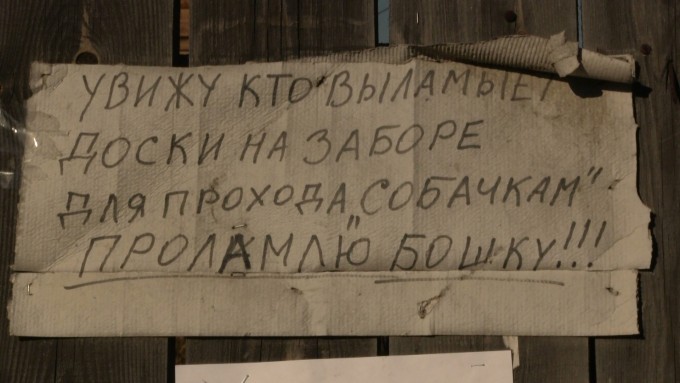 УВИЖУ КТО ВЫЛАМЫЕТ
ДОСКИ НА ЗАБОРЕ
ДЛЯ ПРОХОДА „СОБАЧКАМ"
ПРОЛАМЛЮ БОШКУ!!!